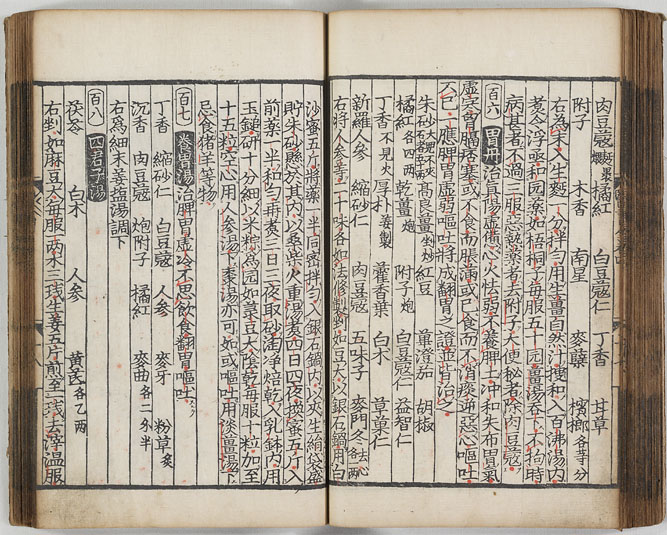 肉豆蔻 橘紅 白豆蔻仁 丁香 甘草
附子 木香 南星 麥蘖 檳榔各等分
右為末入生麪一分拌勻用生薑自然汁搜和入百沸湯內
煮令浮亟和园藥如梧桐子每服五十园薑湯吞下不拘時
病甚者不過三服忌乾藥者式附子大便秘者除肉豆蔻
百六 胃丹 治真陽虛憊心火怯弱不養脾土沖和失布胃氣
虛宗胃膈痞塞或不食而脹滿或已食而不消痰逆惡心嘔吐
不已一應脾胃虛弱嘔吐將成翻胃之證並皆治之
朱砂 高良薑剉炒 紅豆 蓽澄茄 胡椒
橘紅各四兩 乾薑炮 附子炮 白豆蔻仁 益智仁
丁香不見火 厚朴薑製 藿香葉 白朮 草菓仁
新羅人參 縮砂仁 肉豆蔻 五味子 麥門冬去心各
右將人參等二十味各如法修製剉如豆大以銀石鍋用白
沙蜜五斤將藥一半同蜜拌勻入銀石鍋內以夾生絹袋盛
貯朱砂懸於其內以桑柴火重湯煮四日四夜換蜜五斤入
前藥一半和勻再煮三日三夜取砂淘淨焙乾入乳鉢內用
玉鎚研十分細以米粽為园如菉豆大陰乾每服十粒加至
十五粒空心用人參湯下棗湯亦可如或嘔吐用淡薑湯下
忌食猪羊等物
百七 養胃湯 治脾胃虛冷不思飲食翻胃嘔吐
丁香 縮砂仁 白豆蔻 人參 麥牙 粉草炙
沉香 肉豆蔻 炮附子 橘紅 麥曲各二分半
右為細末姜盐湯調下
百八 四君子湯
茯苓 白朮 人參 黃芪各乙兩
右剉如麻豆大每服兩水三戔生姜五片煎至一戔去滓温服